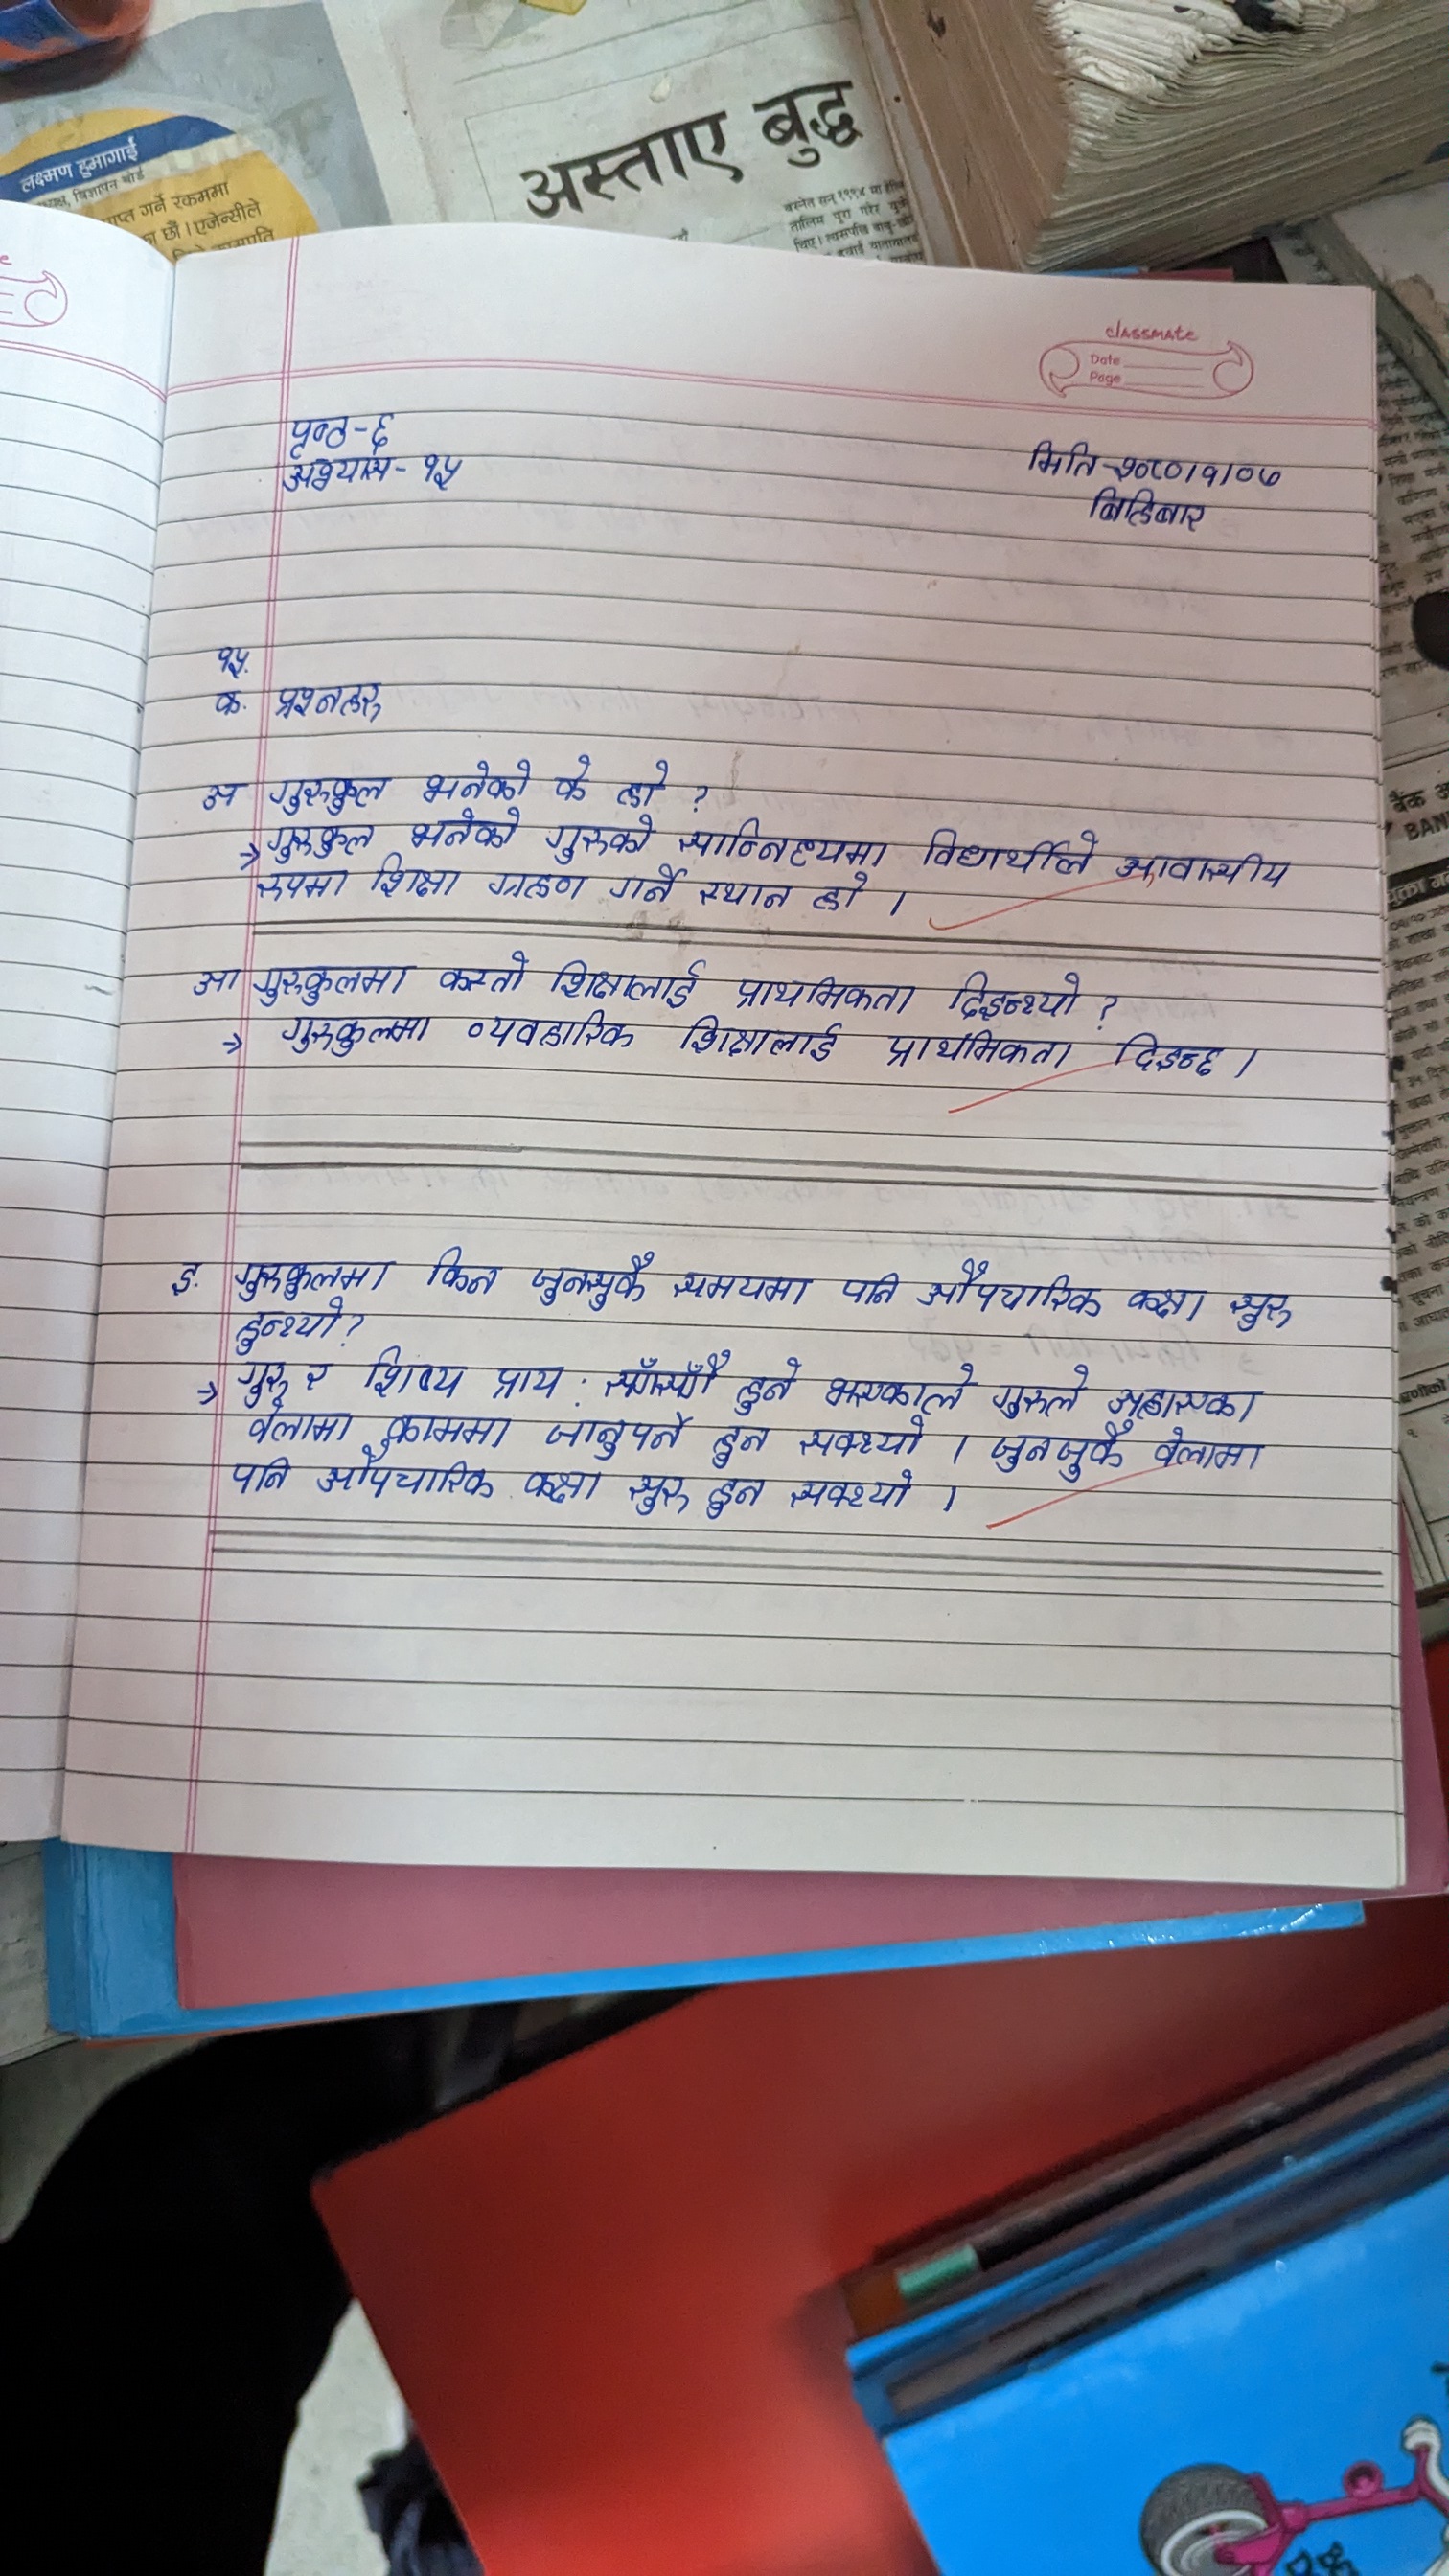 लक्ष्मण हुमागाई
विज्ञापन बोर्ड
प्राप्त गर्ने रकममा
छौं । एजेन्सीले
अस्ताए बुद्ध
classmate
Date
Page
पृष्ठ-६
अभ्यास- १५
मिति-२०८०।१।०७
बिहिबार
१५.
क. प्रश्नहरू
अ गुरुकुल भनेको के हो ?
→ गुरुकुल भनेको गुरुको सान्निध्यमा विद्यार्थीले आवासीय
रुपमा शिक्षा ग्रहण गर्ने स्थान हो ।
आ गुरुकुलमा कस्तो शिक्षालाई प्राथमिकता दिइन्थ्यो ?
→ गुरुकुलमा व्यवहारिक शिक्षालाई प्राथमिकता दिइन्छ ।
इ. गुरुकुलमा किन जुनसुकै समयमा पनि औपचारिक कक्षा सुरु
हुन्थ्यो?
→ गुरु र शिष्य प्राय: सँगसँगै हुने भएकाले गुरुले अह्राएका
वेलामा काममा जानुपर्ने हुन सक्थ्यो । जुनजुकै वेलामा
पनि औपचारिक कक्षा सुरु हुन सक्थ्यो ।
बैंक
BAN